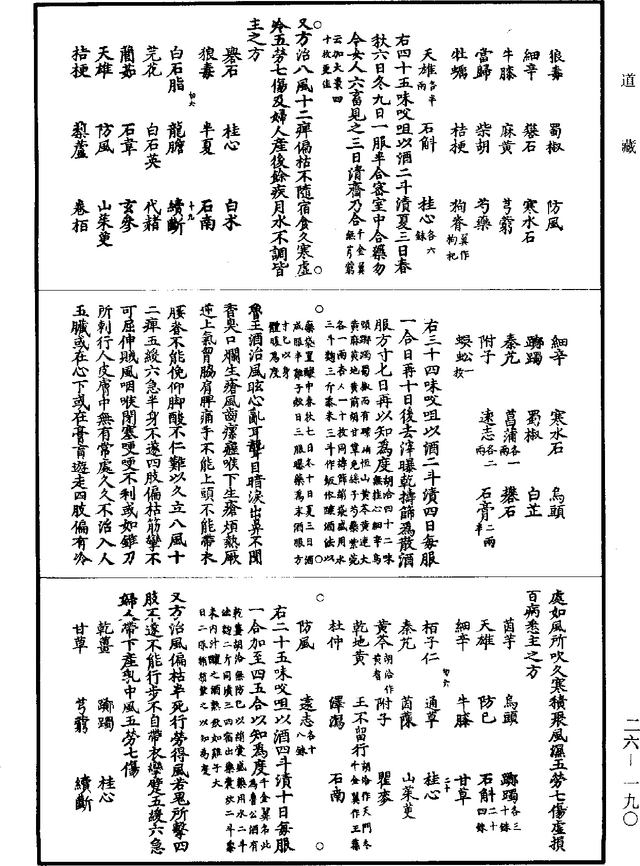 道藏
狼毒 蜀椒 防風
細辛 礬石 寒水石
牛膝 麻黃 芎藭
當歸 柴胡 芍藥
牡蠣 桔梗 狗脊某作枸杞
天雄各半兩 石斛 桂心各六銖
右四十五味㕮咀以酒二斗漬夏三日春
秋六日冬九日一服半合密室中合藥勿
令女人六畜見之三日清齋乃合千金翼無芎藭
云加大棗四十枚更佳
又方治八風十二痺偏枯不隨宿食久寒虛
冷五勞七傷及婦人產後餘疾月水不調皆
主之方
礜石 桂心 白朮
狼毒 半夏 石南
白石脂 龍膽 續斷
芫花 白石英 代赭
䕡茹 石韋 玄參
天雄 防風 山茱萸
桔梗 藜蘆 卷栢
細辛 寒水石 烏頭
躑躅 蜀椒 白芷
秦艽 菖蒲各一兩 礬石
附子 遠志各二兩 石膏二兩半
蜈蚣二枚
右三十四味㕮咀以酒二斗漬四日每服
一合日再十日後去滓曝乾擣篩為散酒
服方寸七日再以知為度
魯王酒治風眩心亂耳聾目暗淚出鼻不聞
香臭口爛生瘡風齒瘰癧喉下生瘡煩熱厥
逆上氣胷脇肩胛痛手不能上頭不能帶衣
腰脊不能俛仰脚酸不仁難以久立八風十
二痺五緩六急半身不遂四肢偏枯筋攣不
可屈伸賊風咽喉閉塞哽哽不利或如錐刀
所刺行人皮膚中無有常處久久不治入人
五臟或在心下或在膏肓遊走四肢偏有冷
處如風所吹久寒積聚風濕五勞七傷虛損
百病悉主之方
茵芋 烏頭 躑躅各三十銖
天雄 防巳 石斛二十四銖
細辛 牛膝 甘草
栢子仁 通草 桂心
秦艽 茵蔯 山茱萸
黃芩胡洽作黃耆 附子 瞿麥
乾地黃 王不留行胡洽作天門冬千金翼作王藥
杜仲 澤瀉 石南
防風 遠志各十八銖
右二十五味㕮咀以酒四斗漬十日每服
一合加至四五合以知為度
又方治風偏枯半死行勞得風若鬼所擊四
肢不遂不能行步不自帶衣攣躄五緩六急
婦人帶下產乳中風五勞七傷
乾薑 躑躅 桂心
甘草 芎藭 續斷
二六—一九〇